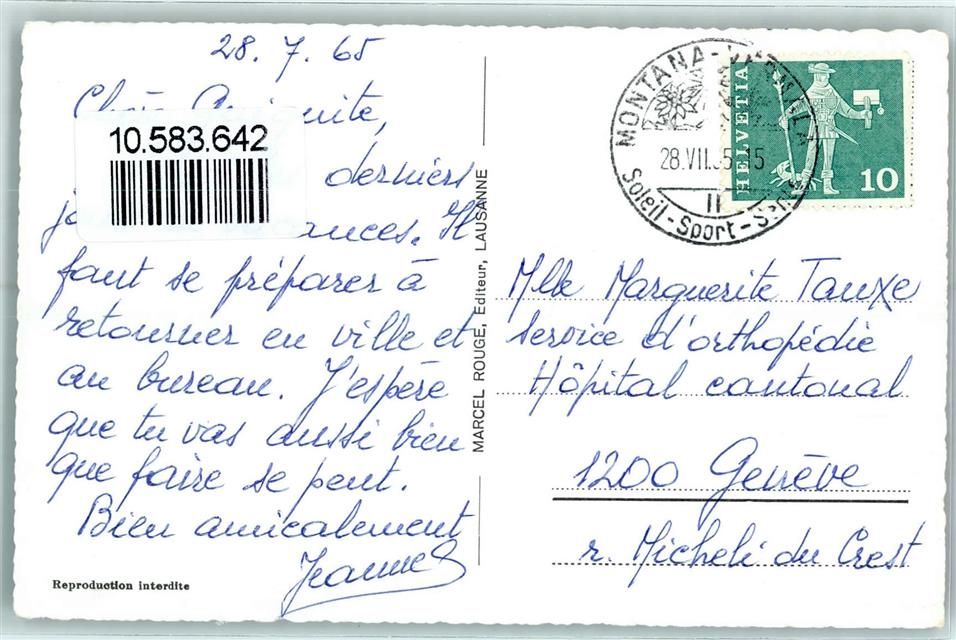 28.7.65
10.583.642
derniers
Il
faut se préparer à
retourner en ville et
au bureau. J'espère
que tu vas aussi bien
que faire se peut.
Bien amicalement
Jeanne
Reproduction interdite
MARCEL ROUGE, Editeur, LAUSANNE
MONTANA-VERMALA
28.VII.65 15
II
Soleil-Sport-Santé
HELVETIA
10
Mlle Marguerite Tauxe
service d'orthopédie
Hôpital cantonal
1200 Genève
r. Micheli du Crest